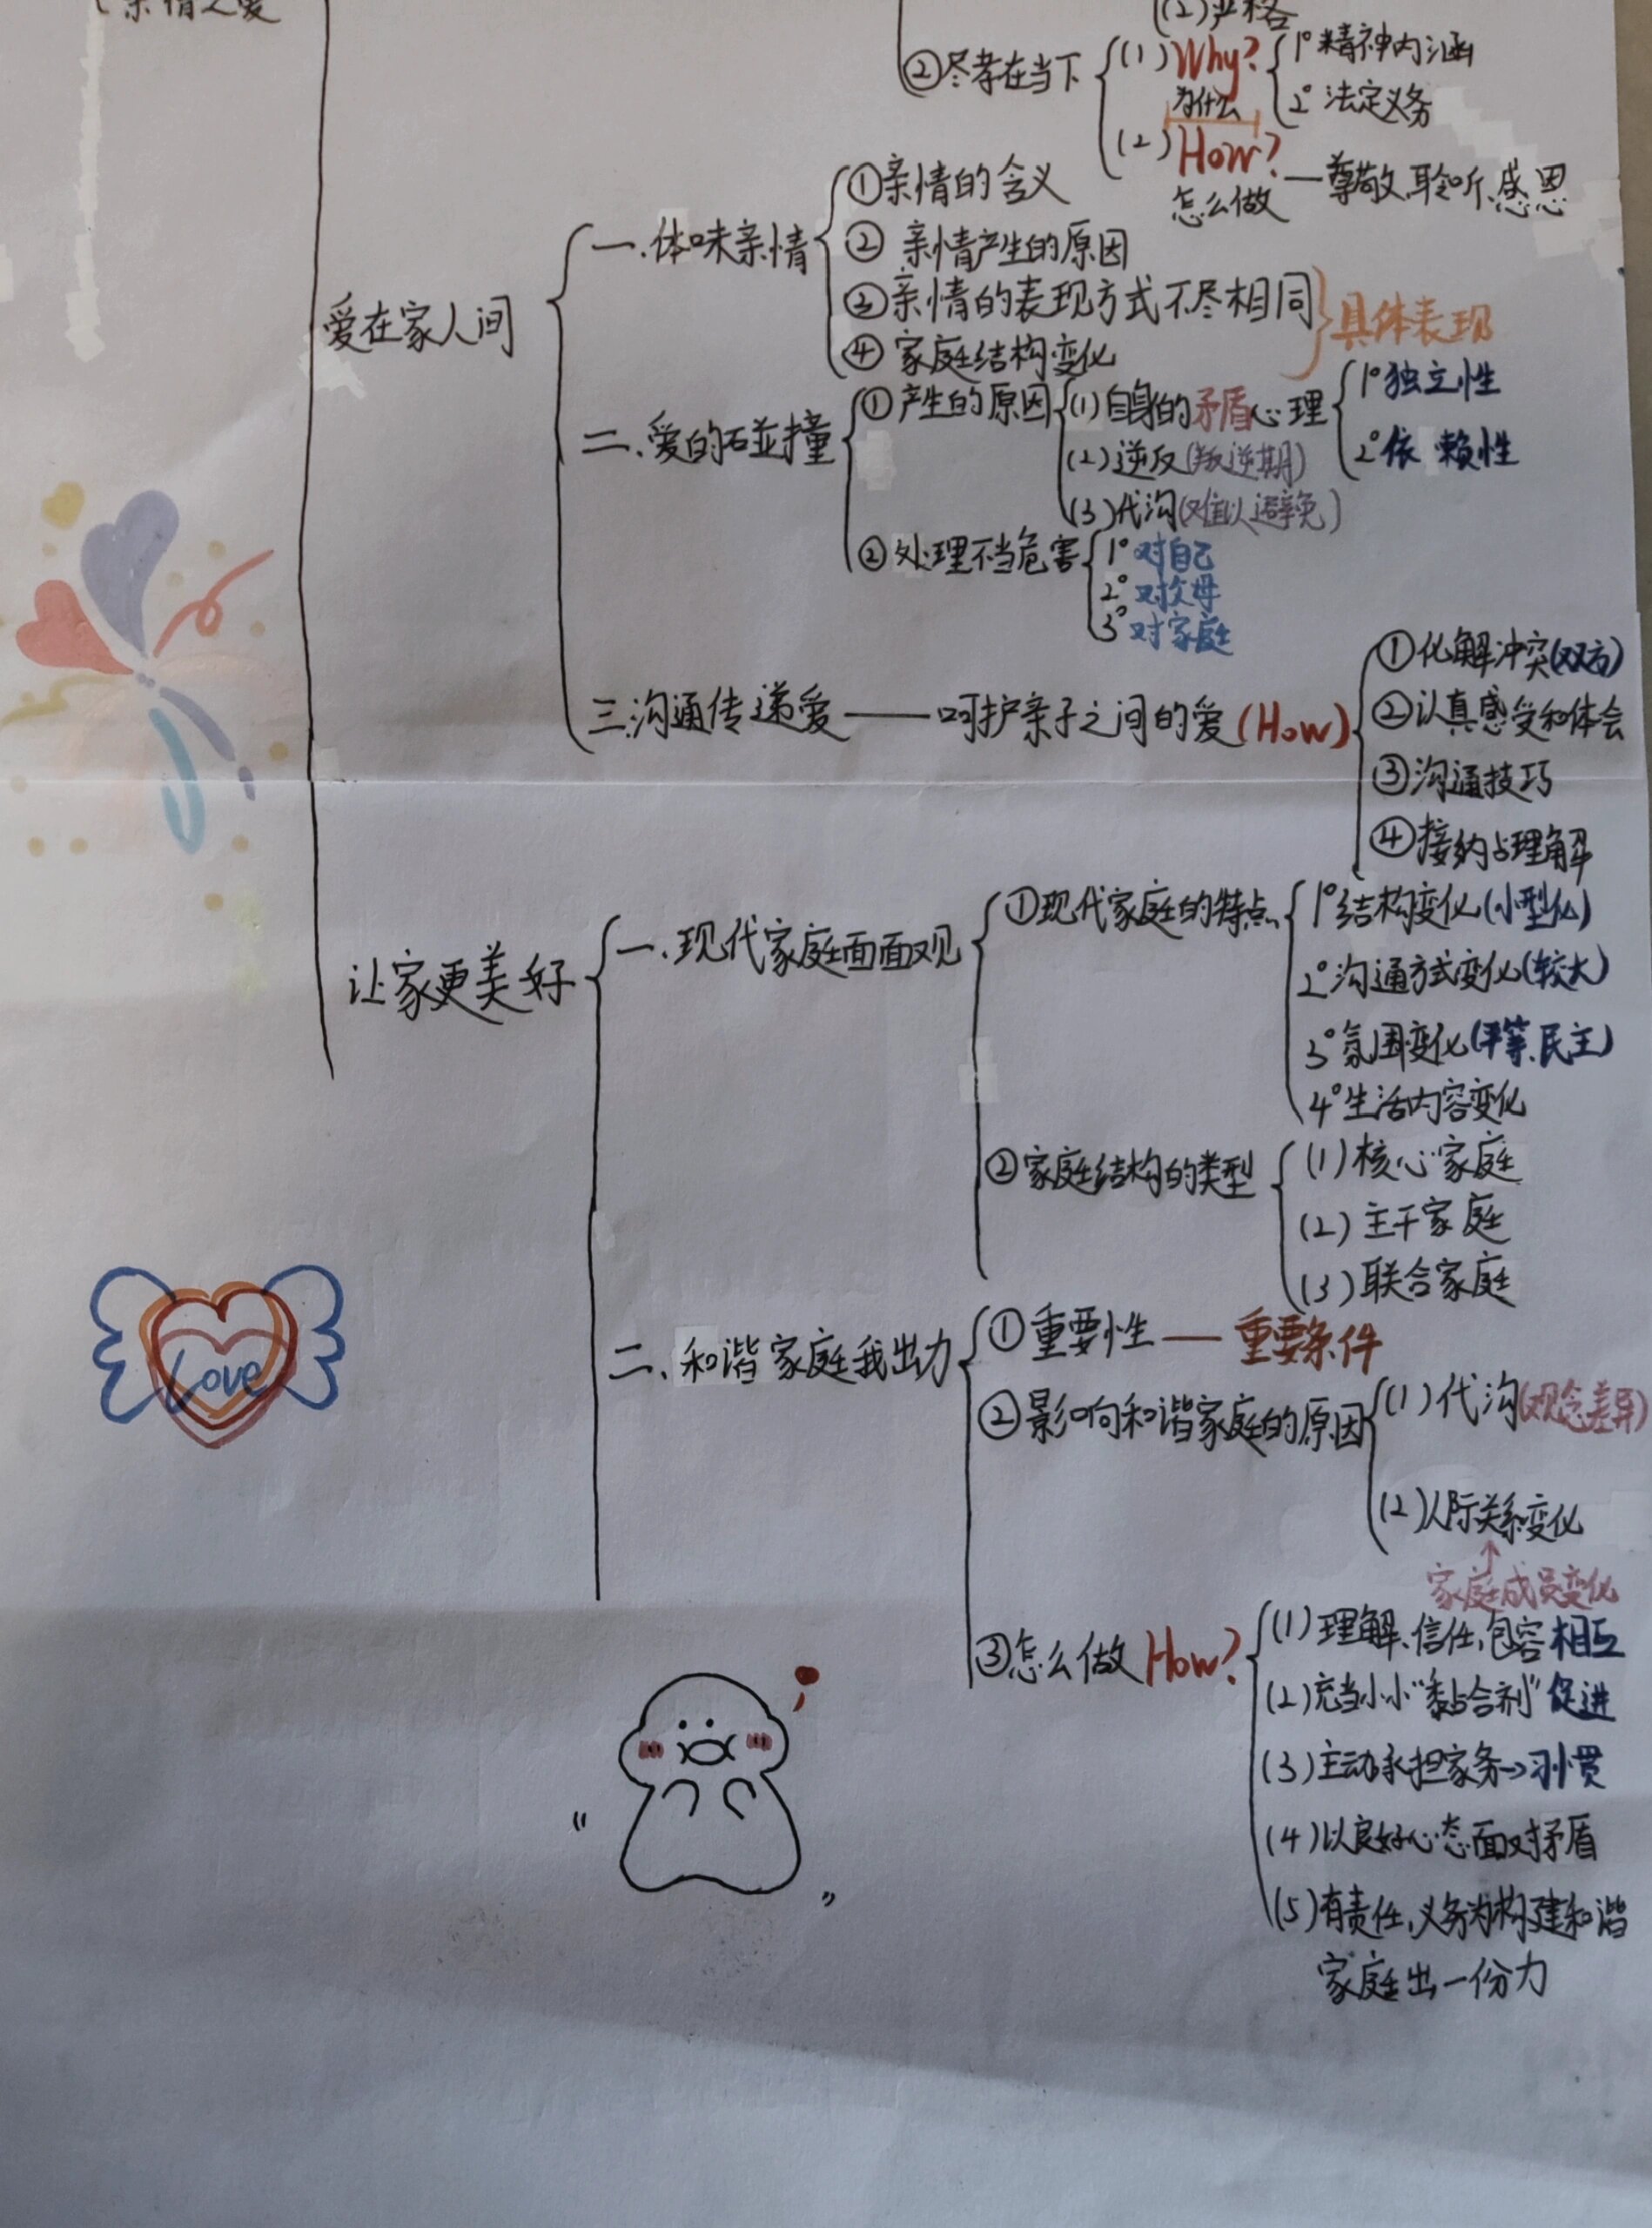 亲情之爱
(2)严格
②尽孝在当下
(1)Why?
为什么
1°精神内涵
2°法定义务
(2)How?
怎么做
—尊敬、聆听、感恩
爱在家人间
一.体味亲情
①亲情的含义
②亲情产生的原因
③亲情的表现方式不尽相同
④家庭结构变化
具体表现
二.爱的碰撞
①产生的原因
(1)自身的矛盾心理
1°独立性
2°依赖性
(2)逆反(叛逆期)
(3)代沟(难以避免)
②处理不当危害
1°对自己
2°对父母
3°对家庭
三.沟通传递爱——呵护亲子之间的爱(How)
①化解冲突(双方)
②认真感受和体会
③沟通技巧
④接纳与理解
让家更美好
一.现代家庭面面观
①现代家庭的特点
1°结构变化(小型化)
2°沟通方式变化(较大)
3°氛围变化(平等、民主)
4°生活内容变化
②家庭结构的类型
(1)核心家庭
(2)主干家庭
(3)联合家庭
二、和谐家庭我出力
①重要性—重要条件
②影响和谐家庭的原因
(1)代沟(观念差异)
(2)人际关系变化
↑
家庭成员变化
③怎么做How?
(1)理解、信任、包容相互
(2)充当小小“黏合剂”促进
(3)主动承担家务→习惯
(4)以良好心态面对矛盾
(5)有责任、义务为构建和谐
家庭出一份力
Love